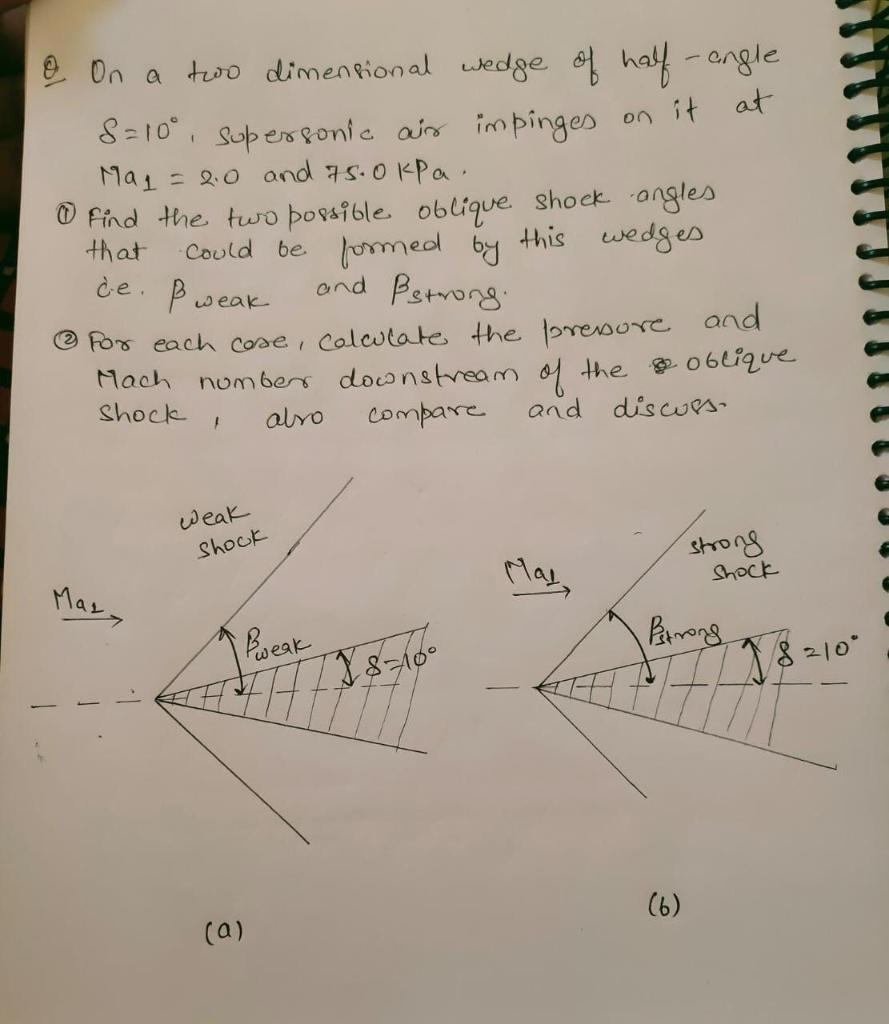 Q On a two dimensional wedge of half-angle
δ=10°, supersonic air impinges on it at
Ma1 = 2.0 and 75.0 KPa.
① Find the two possible oblique shock angles
that could be formed by this wedges
i.e. βweak and βstrong.
② For each case, calculate the pressure and
Mach number downstream of the oblique
shock, also compare and discuss.
weak
shock
Ma1
βweak
δ=10°
(a)
strong
shock
Ma1
βstrong
δ=10°
(b)